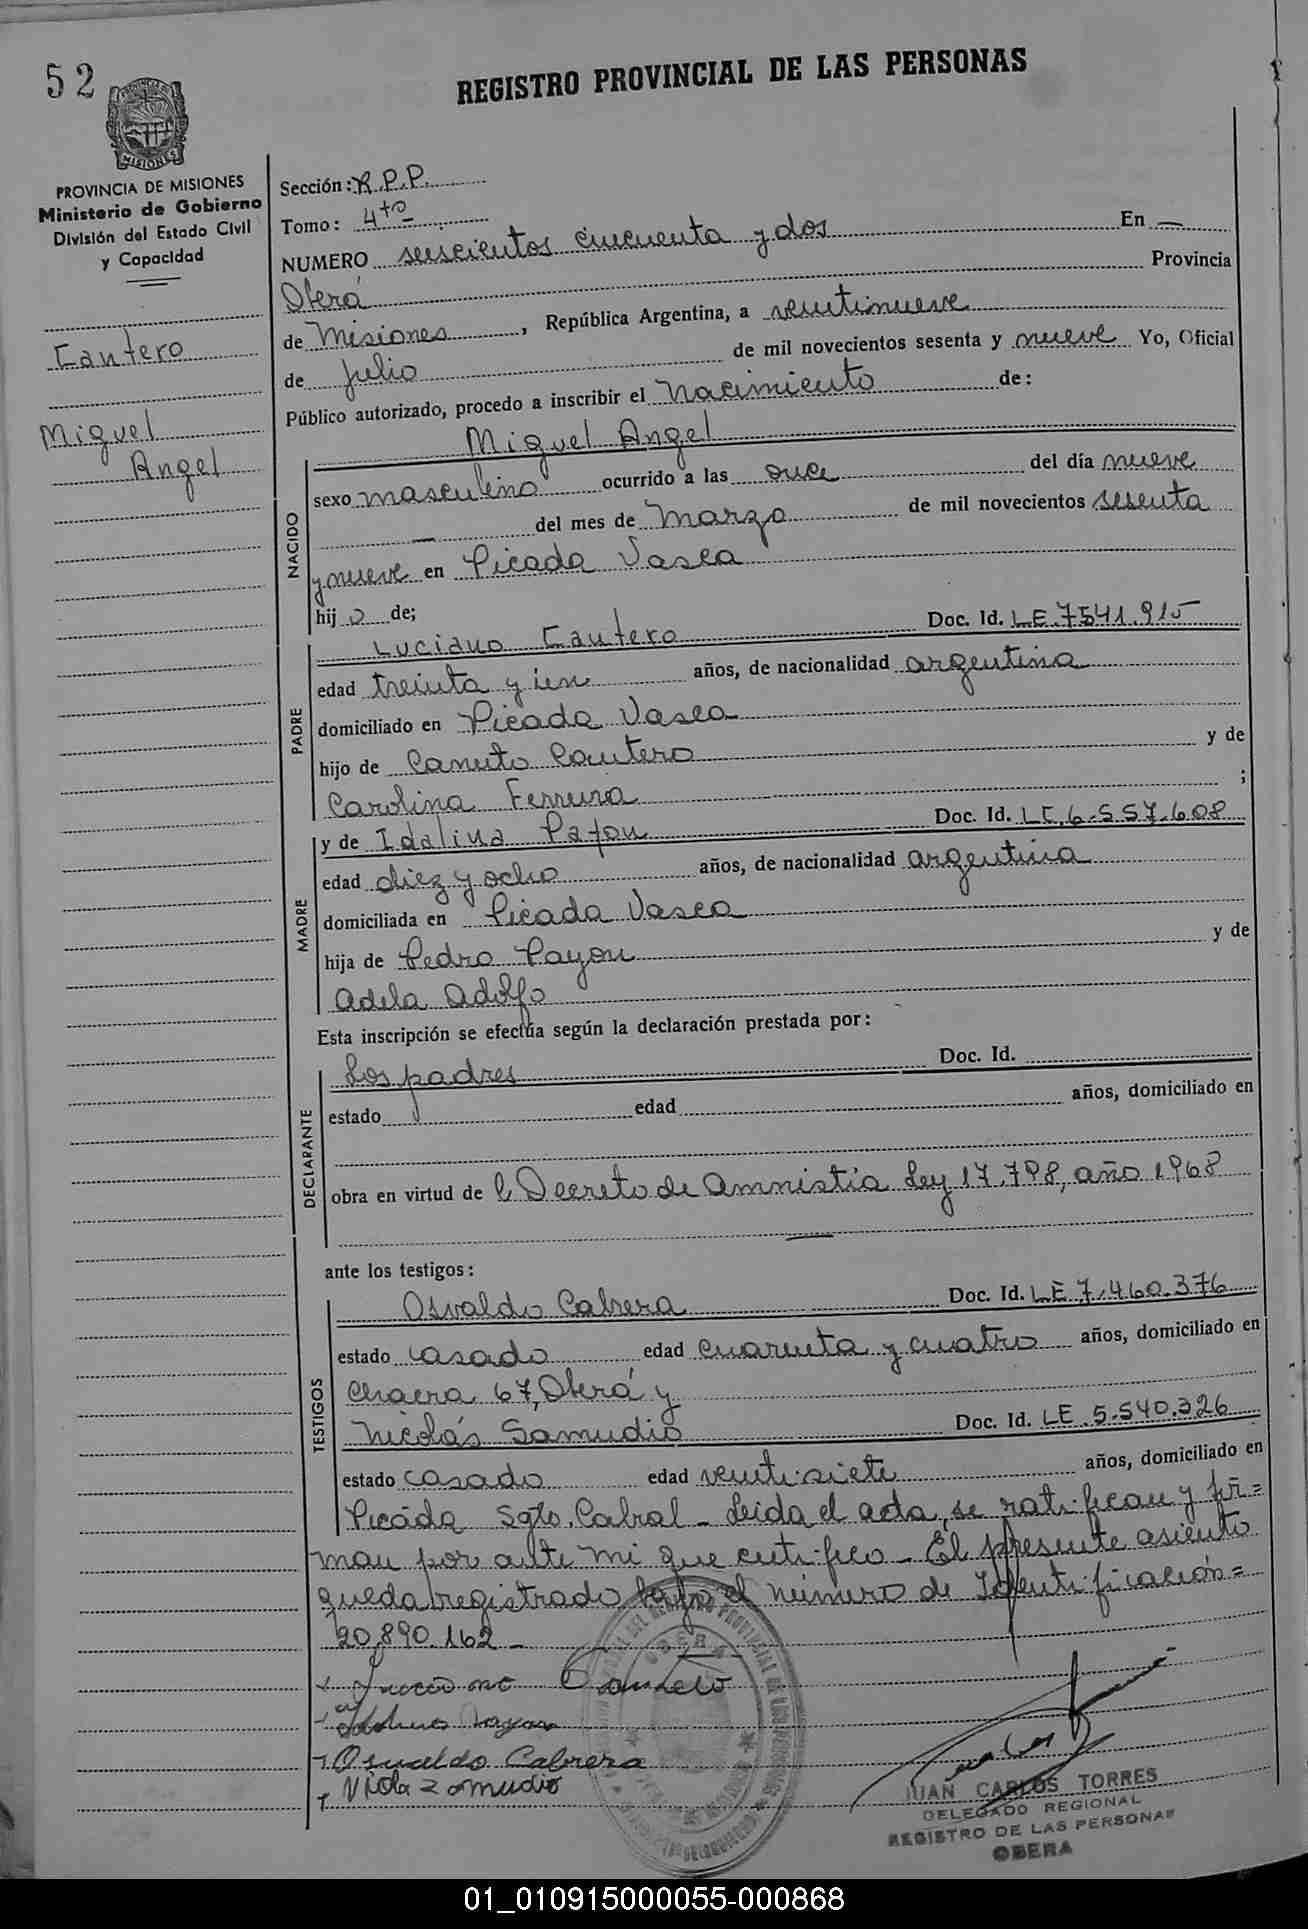 52
REGISTRO PROVINCIAL DE LAS PERSONAS
PROVINCIA DE MISIONES
Ministerio de Gobierno
División del Estado Civil
y Capacidad
Cantero
Miguel
Angel
Sección: R.P.P.
Tomo: 4to
NUMERO seiscientos cincuenta y dos En —
Oberá Provincia
de Misiones, República Argentina, a veintinueve
de Julio de mil novecientos sesenta y nueve Yo, Oficial
Público autorizado, procedo a inscribir el Nacimiento de:
Miguel Angel
NACIDO
sexo masculino ocurrido a las once del día nueve
— del mes de Marzo de mil novecientos sesenta
y nueve en Picada Vasca
hijo de;
PADRE
Luciano Cantero Doc. Id. LE.7541.915
edad treinta y un años, de nacionalidad argentina
domiciliado en Picada Vasca
hijo de Canuto Cantero y de
Carolina Ferreira ;
MADRE
y de Idalina Payon Doc. Id. LC.6.557.608
edad diez y ocho años, de nacionalidad argentina
domiciliada en Picada Vasca
hija de Pedro Payon y de
Adela Adolfo
Esta inscripción se efectúa según la declaración prestada por:
DECLARANTE
Los padres Doc. Id.
estado edad años, domiciliado en
obra en virtud de l Decreto de Amnistia Ley 17.798, año 1968
—
ante los testigos:
TESTIGOS
Osvaldo Cabrera Doc. Id. LE 7.460.376
estado casado edad cuarenta y cuatro años, domiciliado en
Chacra 67, Oberá y
Nicolás Samudio Doc. Id. LE.5.540.326
estado casado edad veintisiete años, domiciliado en
Picada Sgto. Cabral - Leida el acta, se ratifican y fir=
man por ante mi que certifico - El presente asiento
queda registrado bajo el número de Identificación=
20.890.162 -
Cantero
Osvaldo Cabrera
JUAN CARLOS TORRES
DELEGADO REGIONAL
REGISTRO DE LAS PERSONAS
OBERA
01_010915000055-000868